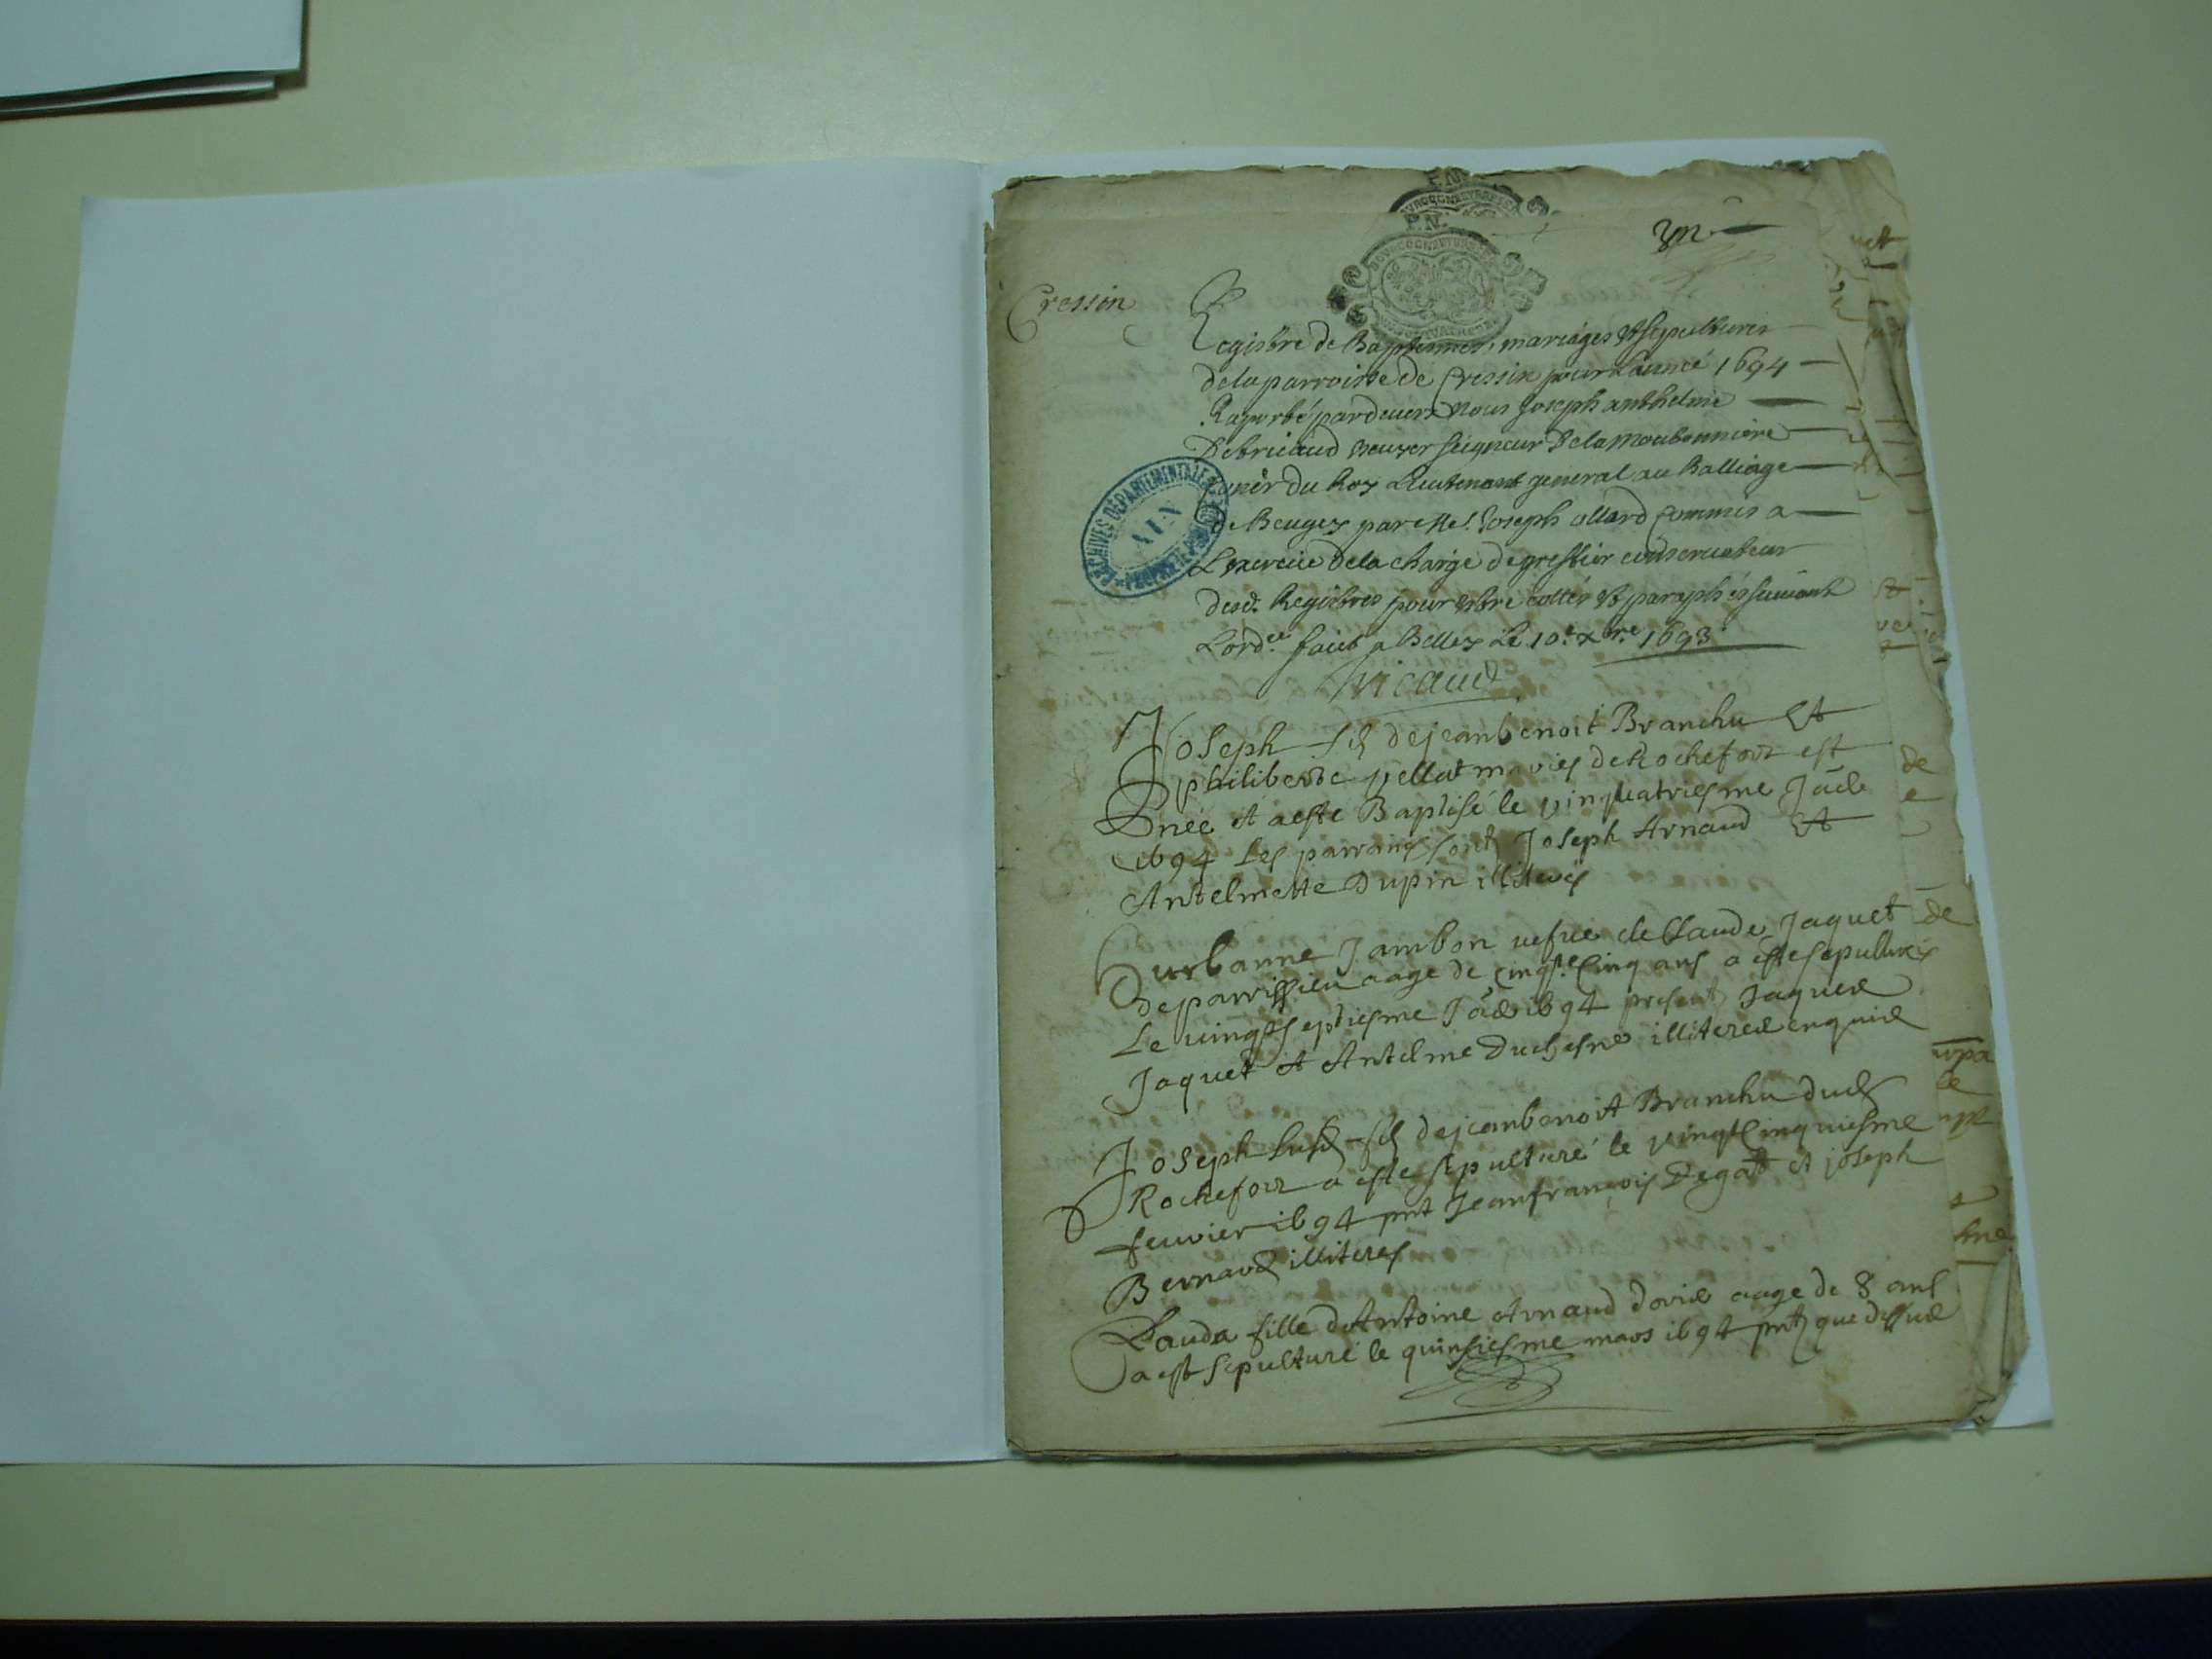 Cressin
Registre de Baptesmes, mariages et sepultures
de la parroisse de Cressin pour L'année 1694
Raporté pardevers Nous Joseph anthelme
seigneur De la
du Roy Lieutenant general au Balliage
De Beugey par Joseph allard commis a
L'exercice De la charge de greffier conservateur
desd. Registres pour estre cottés et paraphés suivant
L'ord.ce faict a Belley Le 10.e xbre 1693
Joseph fils de jean benoit Branchu et
philiberte pellat mariés de Rochefort est
née et a esté Baptisé le vinquatriesme
1694 Les parrains sont Joseph Arnaud et
Antelmette Dupin illiterés
urbanne Jambon vefve de Claude Jaquet
de parrissieu aage de cinq ans a esté sepulturés
Le vingtseptiesme 1694 present Jaques
Jaquet et Antelme Duchesne illiteres enquis
Joseph fils de jean benoit Branchu dud
Rochefort a esté sepulturé le vingtcinquiesme
feuvrier 1694 pnt Jean françois Degat et joseph
Bernard illiteres
Clauda fille d'Antoine Arnaud aage de 8 ans
a est sepulturé le quinsiesme mars 1694 pnts que dessus
ARCHIVES DÉPARTEMENTALES
AIN